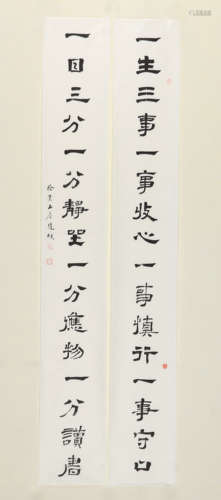 一生三事一事收心一事慎行一事守口
一日三分一分靜坐一分應物一分讀書